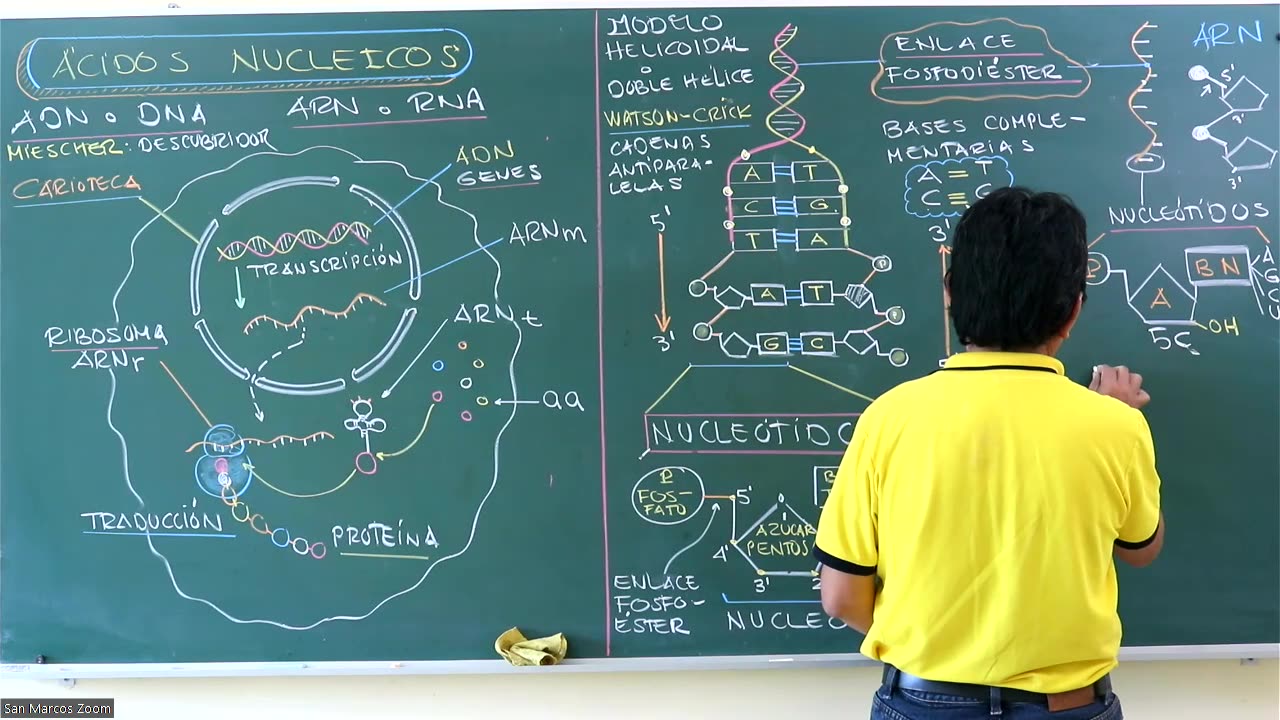 ÁCIDOS NUCLEICOS
ADN o DNA
ARN o RNA
MIESCHER: DESCUBRIDOR
CARIOTECA
ADN
GENES
ARNm
TRANSCRIPCIÓN
RIBOSOMA
ARNr
ARNt
aa
TRADUCCIÓN
PROTEÍNA
MODELO
HELICOIDAL
o
DOBLE HÉLICE
WATSON-CRICK
CADENAS
ANTIPARA-
LELAS
5'
3'
A = T
C ≡ G
T = A
A = T
G ≡ C
P
ENLACE
FOSFODIÉSTER
BASES COMPLE-
MENTARIAS
A = T
C ≡ G
3'
NUCLEÓTIDO
P
FOS-
FATO
5'
4'
3'
2'
1'
AZÚCAR
PENTOS
ENLACE
FOSFO-
ÉSTER
NUCLEO
ARN
5'
3'
3'
NUCLEÓTIDOS
P
A
BN
A
G
C
U
5C
OH
San Marcos Zoom